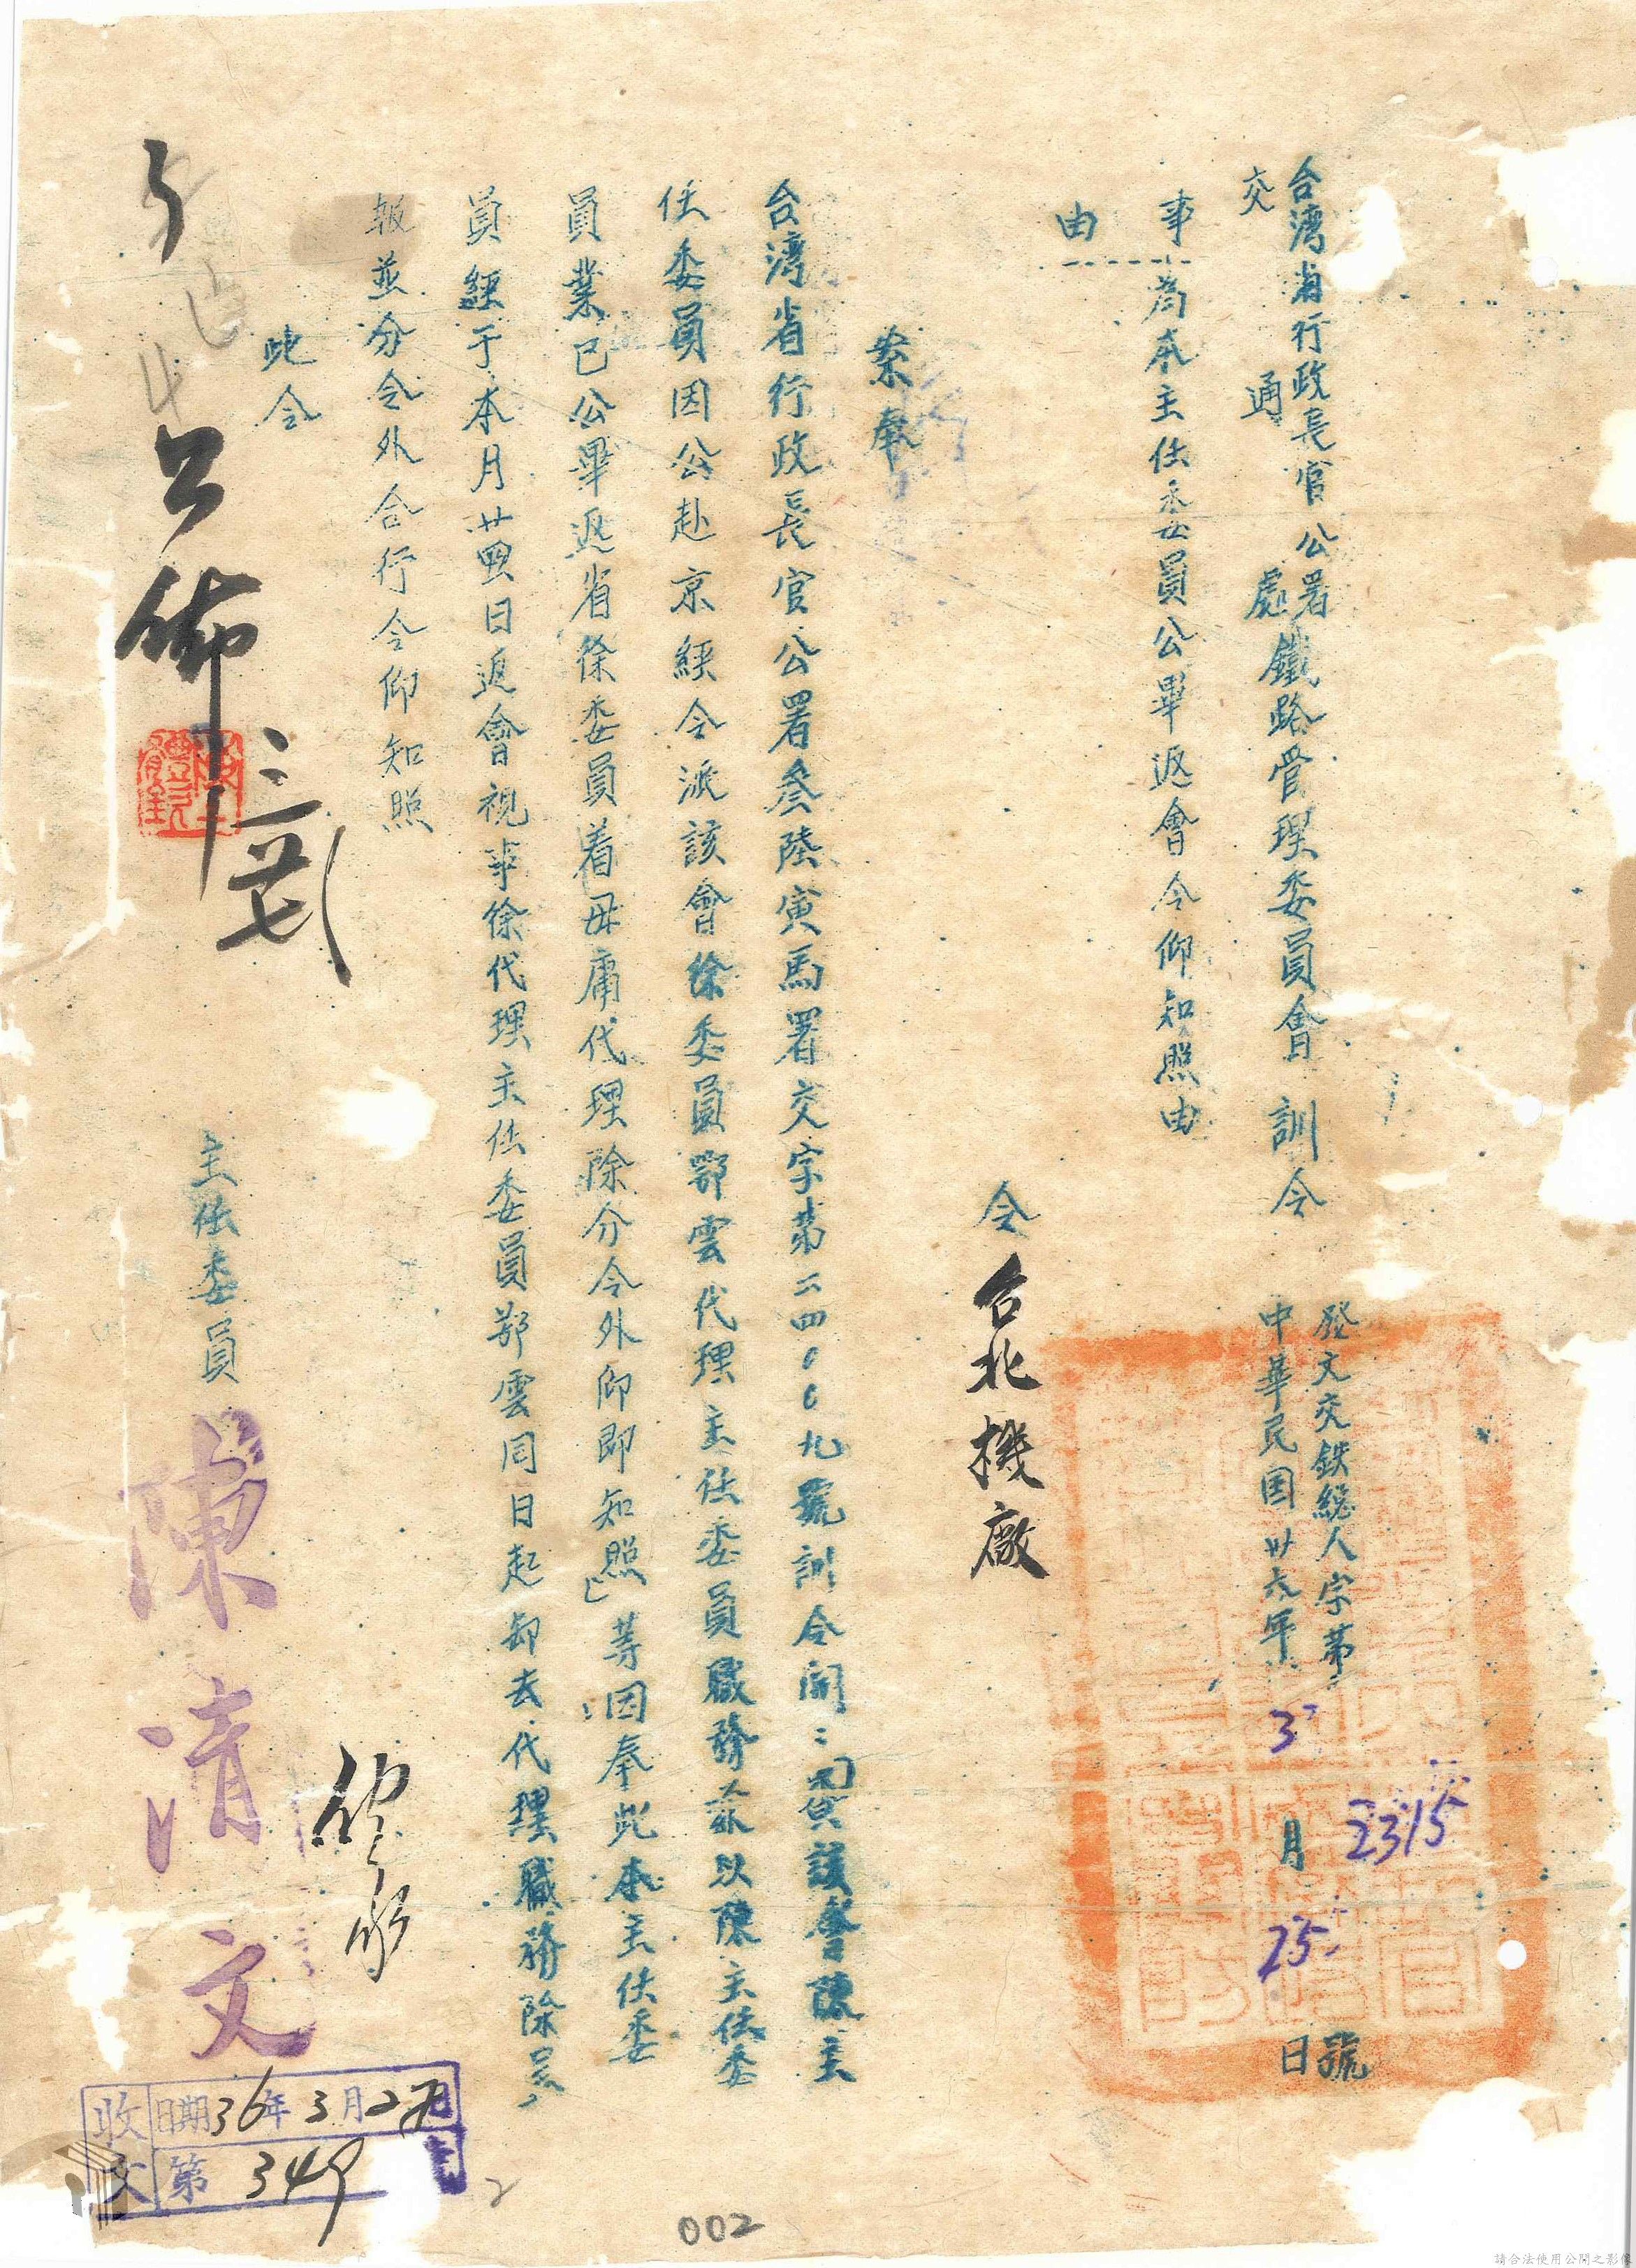 台灣省行政長官公署鐵路管理委員會 訓令
交通處
發文交鉄總人字第 2315 號
中華民国卅六年 3 月 25 日
事由
為本主任委員公畢返會令仰知照由
令台北機廠
案奉
台灣省行政長官公署叁陸寅馬署交字第二四００九號訓令開：「查該會陳主
任委員因公赴京經令派該會徐委員鄂雲代理主任委員職務茲以陳主任委
員業已公畢返省徐委員着毋庸代理除分令外仰即知照」等因奉此本主任委
員經于本月廿四日返會視事徐代理主任委員鄂雲同日起卸去代理職務除呈
報並分令外合行令仰知照
此令
主任委員 陳清文
公佈
三 廿七
收文
日期 36年3月27日
第 349
2
002
請合法使用公開之影像